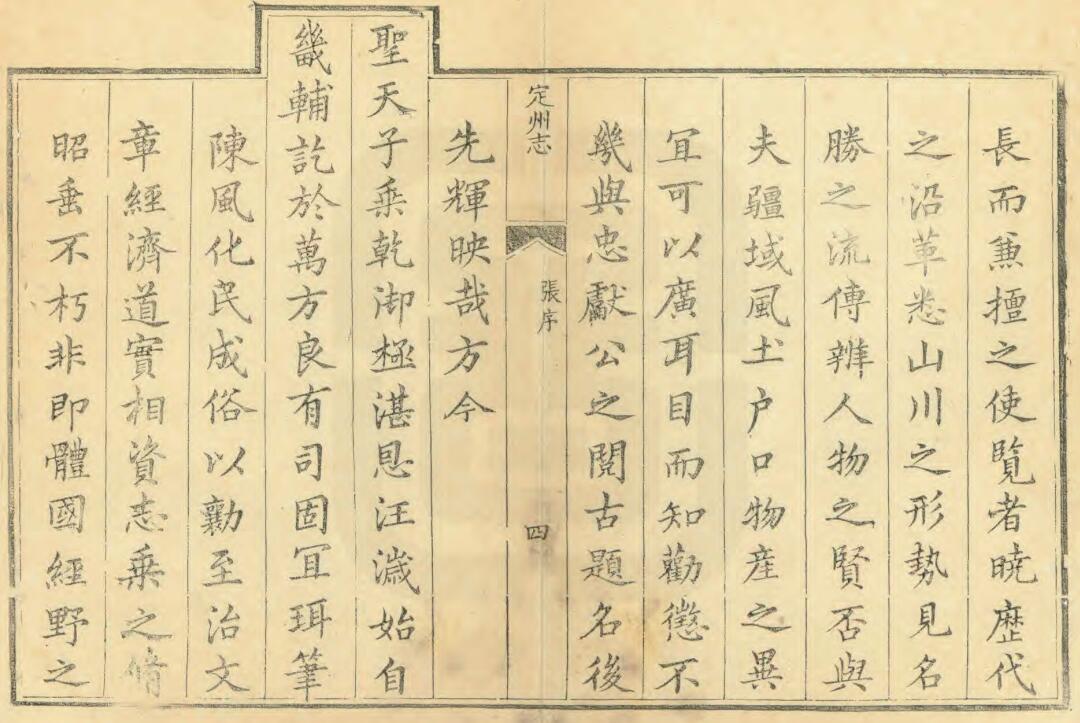 長而兼擅之使覽者曉歷代
之沿革悉山川之形勢見名
勝之流傳辨人物之賢否與
夫疆域風土户口物産之異
宜可以廣耳目而知勸懲不
幾與忠獻公之閱古題名後
定州志
張序
四
先輝映哉方今
聖天子乘乾御極湛恩汪濊始自
畿輔訖於萬方良有司固宜珥筆
陳風化民成俗以勷至治文
章經濟道實相資志乘之脩
昭垂不朽非即體國經野之